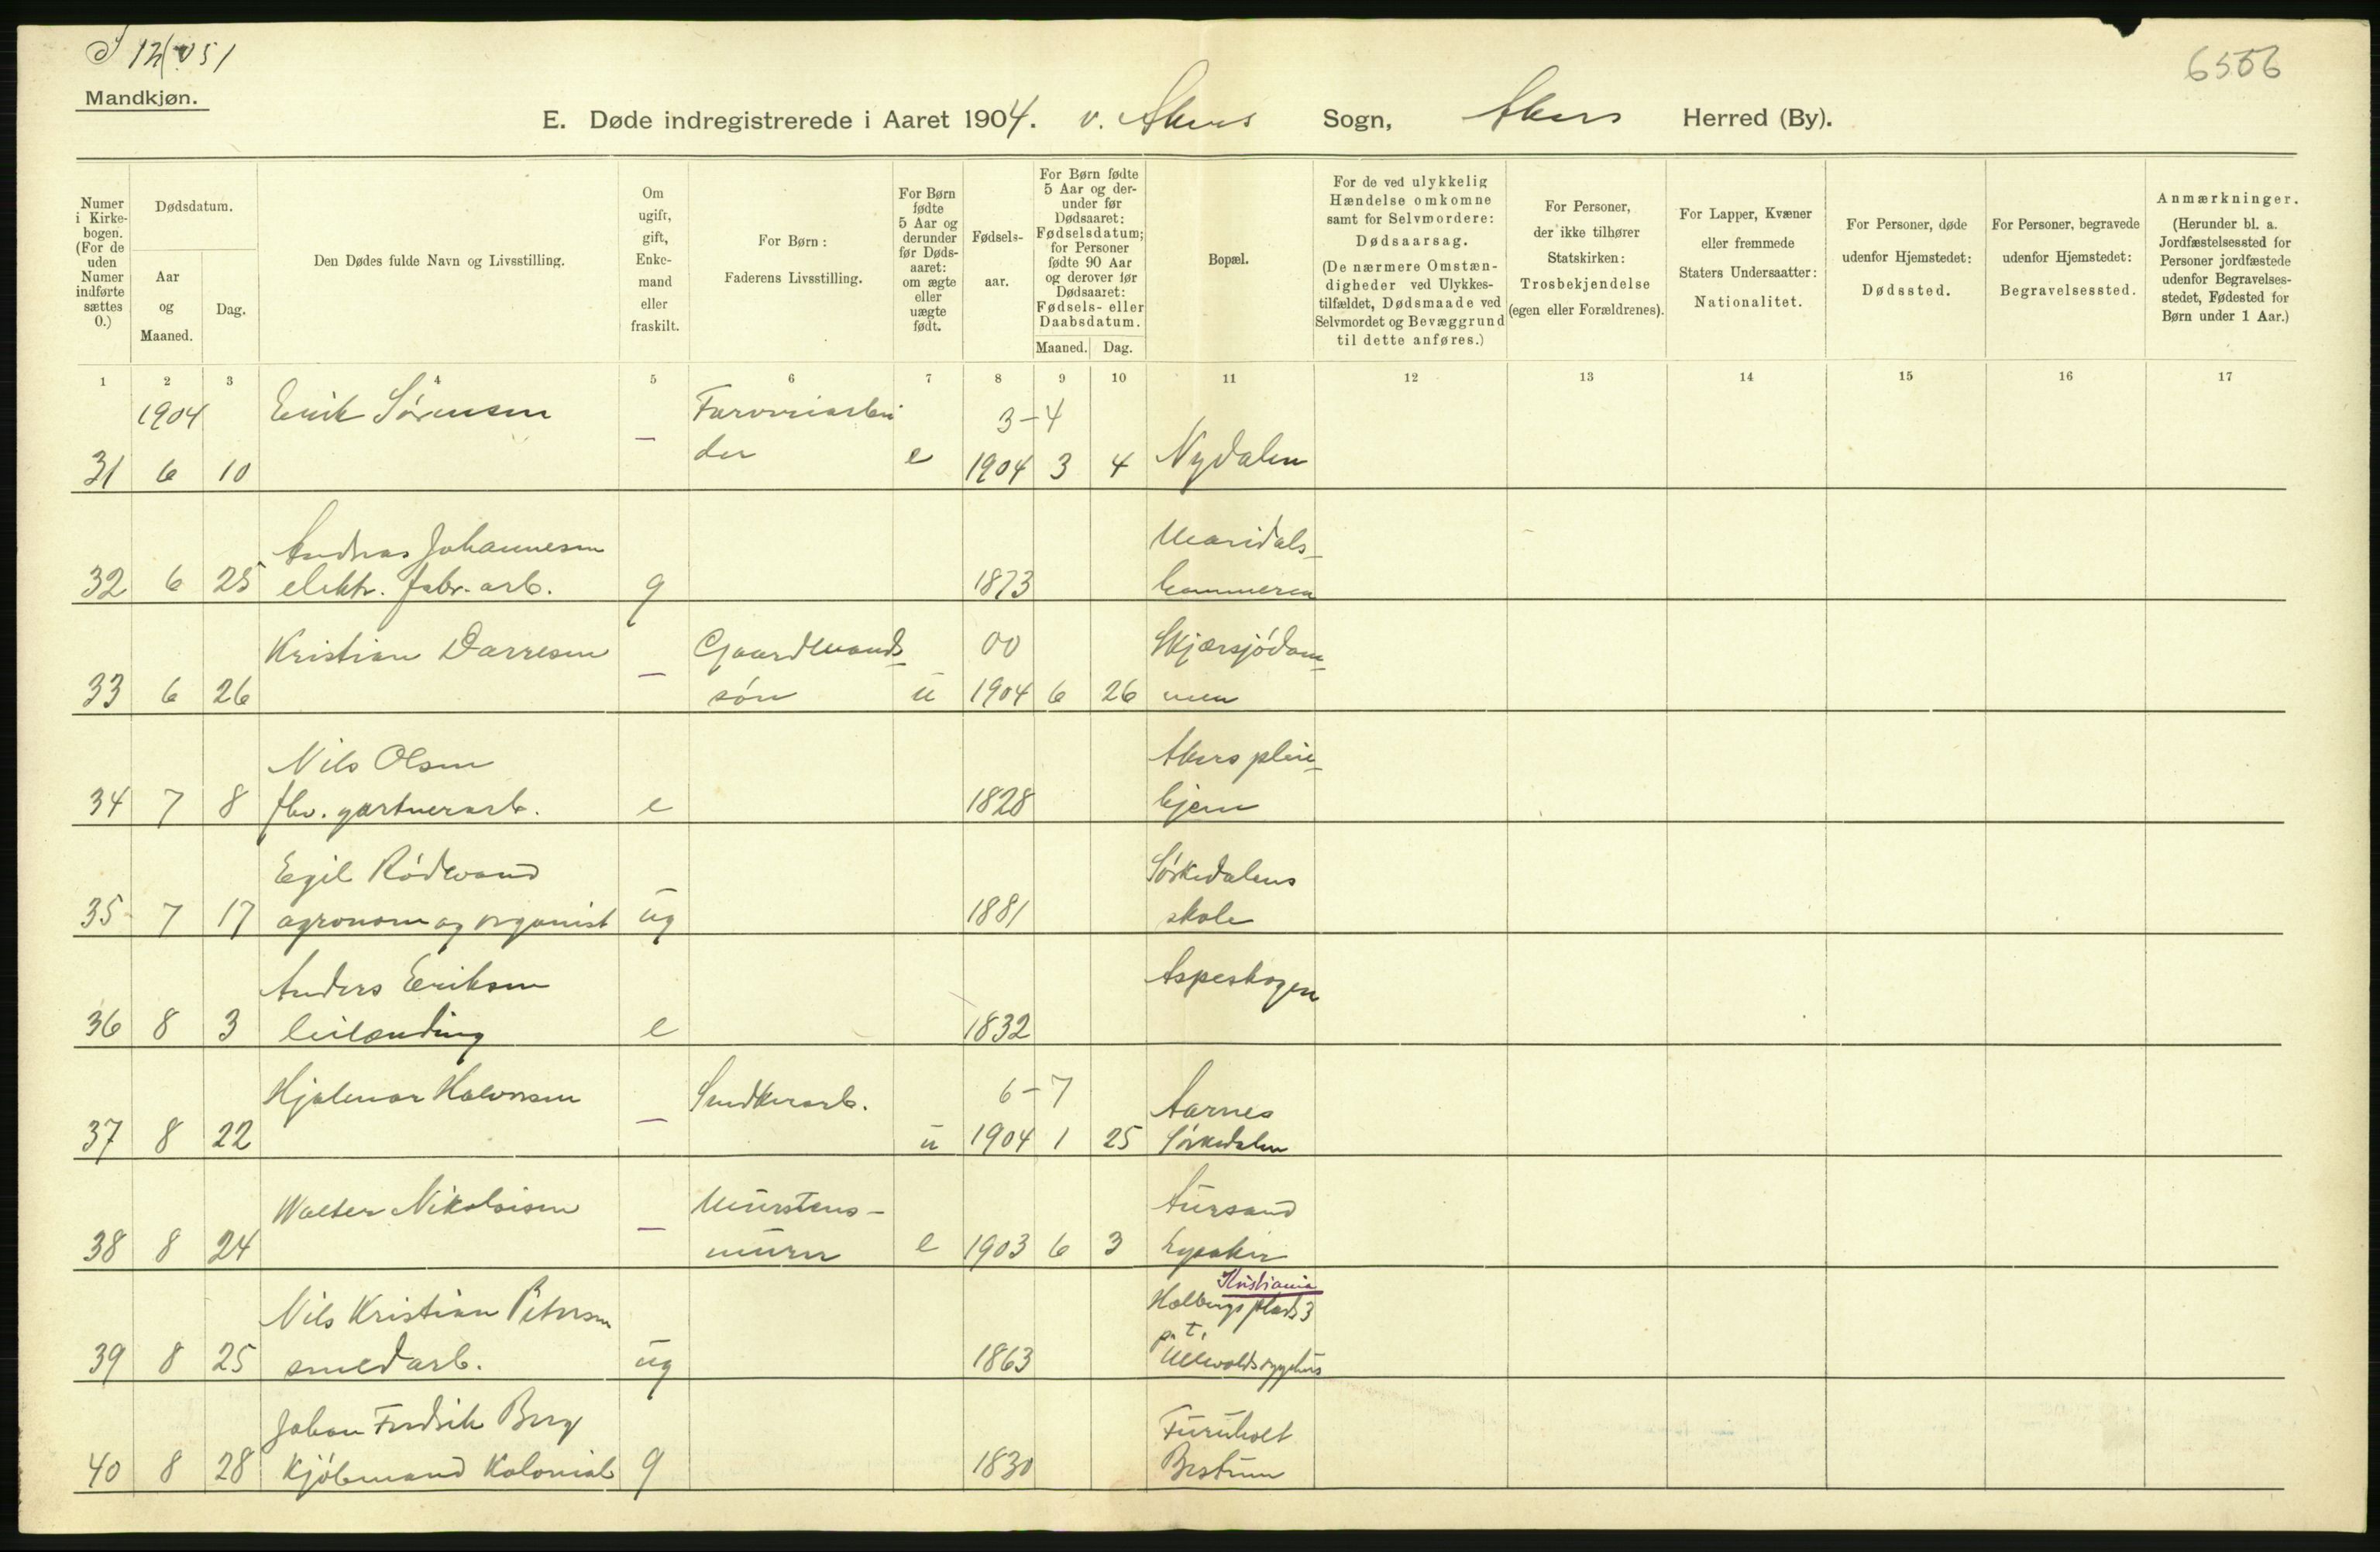 6556
Mandkjøn.
E. Døde indregistrerede i Aaret 1904. v. Akers Sogn, Akers Herred (By).
Numer i Kirkebogen. (For de uden Numer indførte sættes 0.)
Dødsdatum.
Aar og Maaned.
Dag.
Den Dødes fulde Navn og Livsstilling.
Om ugift, gift, Enkemand eller fraskilt.
For Børn: Faderens Livsstilling.
For Børn fødte 5 Aar og derunder før Dødsaaret: om ægte eller uægte født.
Fødselsaar.
For Børn fødte 5 Aar og derunder før Dødsaaret: Fødselsdatum; for Personer fødte 90 Aar og derover før Dødsaaret: Fødsels- eller Daabsdatum.
Maaned. Dag.
Bopæl.
For de ved ulykkelig Hændelse omkomne samt for Selvmordere: Dødsaarsag. (De nærmere Omstændigheder ved Ulykkestilfældet, Dødsmaade ved Selvmordet og Bevæggrund til dette anføres.)
For Personer, der ikke tilhører Statskirken: Trosbekjendelse (egen eller Forældrenes).
For Lapper, Kvæner eller fremmede Staters Undersaatter: Nationalitet.
For Personer, døde udenfor Hjemstedet: Dødssted.
For Personer, begravede udenfor Hjemstedet: Begravelsessted.
Anmærkninger. (Herunder bl. a. Jordfæstelsessted for Personer jordfæstede udenfor Begravelsesstedet, Fødested for Børn under 1 Aar.)
1 2 3 4 5 6 7 8 9 10 11 12 13 14 15 16 17
1904 Erik Sörensen Farveriarbei 3-4
31 6 10 — der e 1904 3 4 Nydalen
Andreas Johannesen Maridals-
32 6 25 elektr. fabr. arb. g 1873 hammeren
Kristian Darresen Gaardmands- 00 Skjærsjödam-
33 6 26 — sön u 1904 6 26 men
Nils Olsen Akers pleie-
34 7 8 fhv. gartnerarb. e 1828 hjem
Egil Rödwand Sörkedalens
35 7 17 agronom og organist ug 1881 skole
Anders Eriksen Aspeskogen
36 8 3 leilænding e 1832
Hjalmar Halvorsen Snedkerarb. 6-7 Aarnes
37 8 22 — u 1904 1 25 Sörkedalen
Walter Nikolaisen Murstens- Aursand
38 8 24 — murer e 1903 6 3 Lysaker
Kristiania
Nils Kristian Petersen Holbergs plads 3
p. t.
39 8 25 smedarb. ug 1863 Ullevolds sygehus
Johan Fredrik Berg Furuholt
40 8 28 Kjöbmand Kolonial g 1830 Bestum